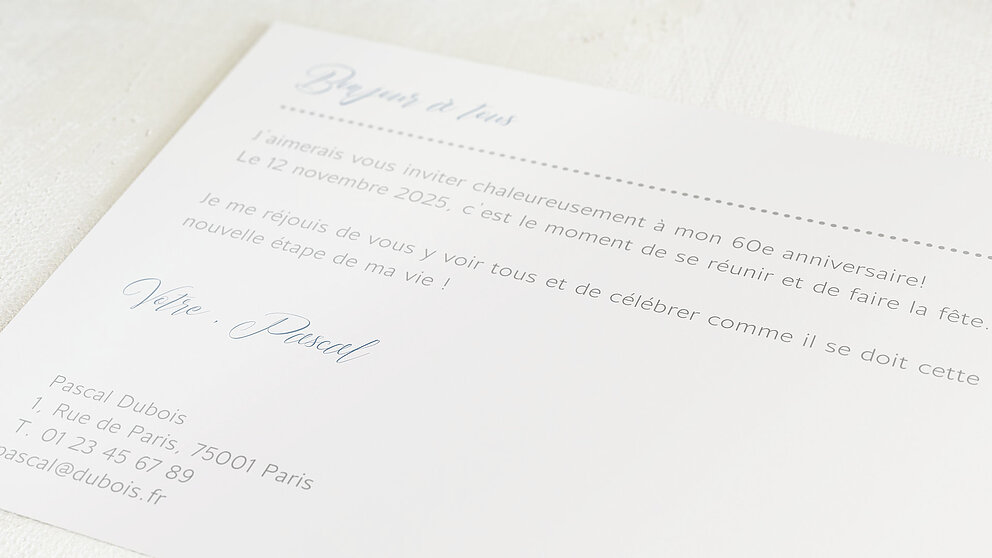 Bonjour à tous
J'aimerais vous inviter chaleureusement à mon 60e anniversaire!
Le 12 novembre 2025, c'est le moment de se réunir et de faire la fête.
Je me réjouis de vous y voir tous et de célébrer comme il se doit cette
nouvelle étape de ma vie !
Votre, Pascal
Pascal Dubois
1, Rue de Paris, 75001 Paris
T. 01 23 45 67 89
pascal@dubois.fr